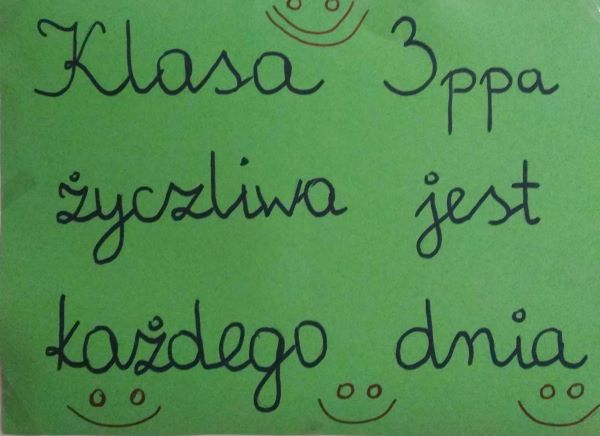 Klasa 3ppa
życzliwa jest
każdego dnia